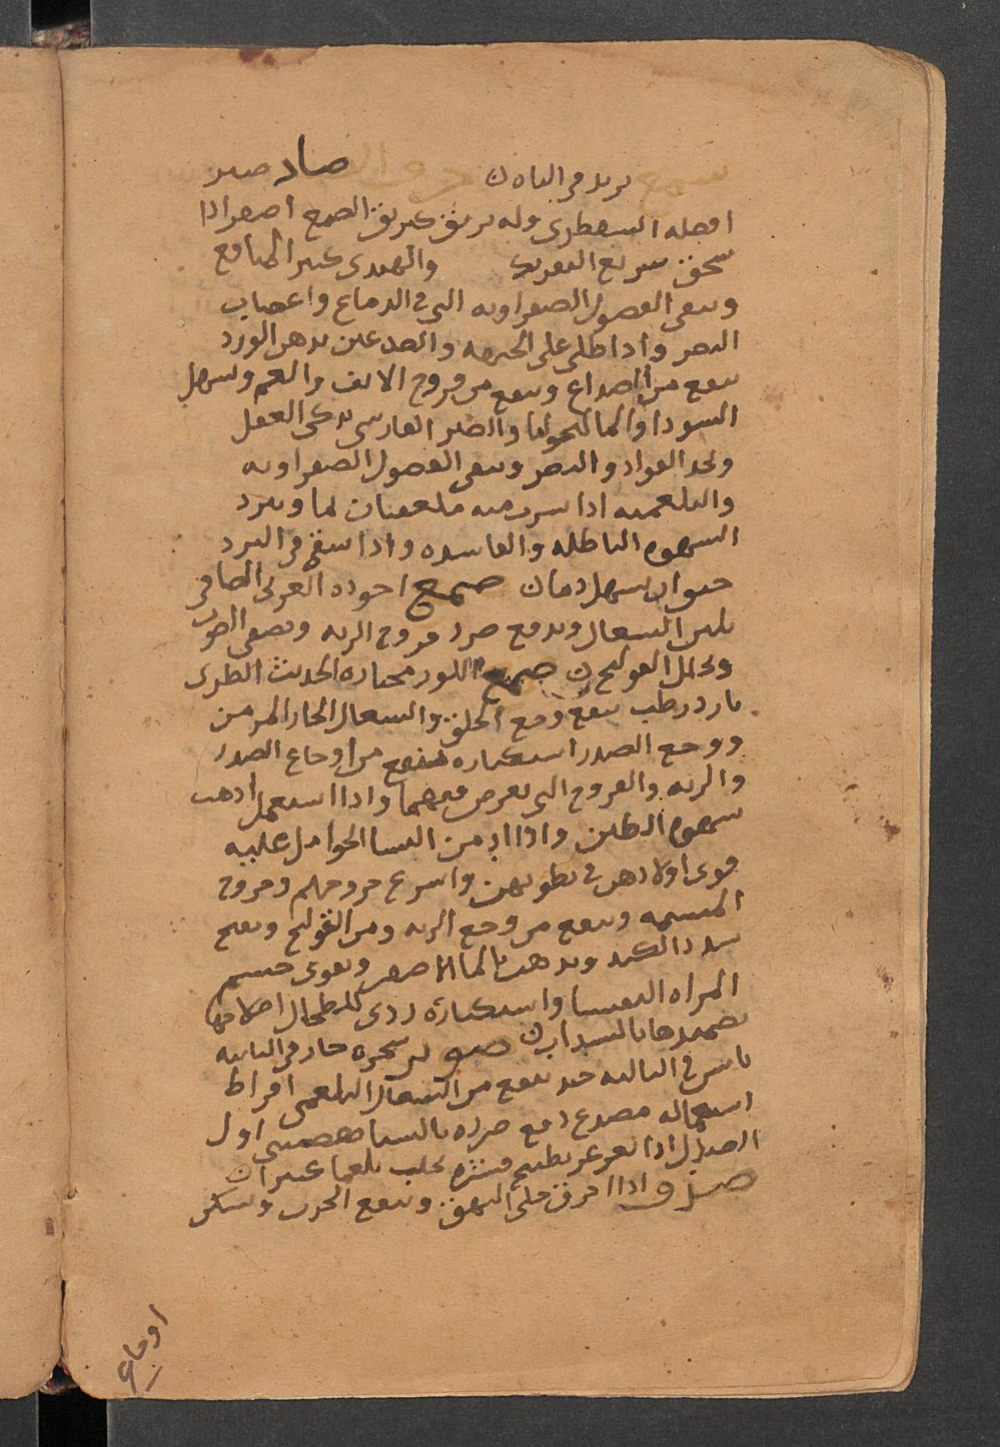 يزيد في الباه ن صاد صبر
افضله السقطري وله بريق كبريق الصمغ اصفر اذا
سحق سريع التفريك والهندي كثير المنافع
وينقي الفضول الصفراويه التي في الدماغ واعصاب
البصر واذا طلي على الجبهه والصدغين بدهن الورد
ينفع من الصداع وينفع من قروح الانف والفم ويسهل
السودا والماليخوليا والصبر الفارسي يذكي العقل
ويحد الفواد والبصر وينقي الفضول الصفراويه
والبلغميه اذا شرب منه ملعقتان بما ويرد
الشهوه الباطله والفاسده واذا سقي في البرد
خيف ان يسهل دما ن صمغ اجوده العربي الصافي
يلين السعال ويدفع ضرر قروح الريه ويصفي الصوت
ويحلل القولنج ن صمغ اللوز مختاره الحديث الطري
بارد رطب ينفع وجع الحلق والسعال الحار المزمن
ووجع الصدر استكثاره ينفع من اوجاع الصدر
والريه والقروح التي تعرض فيهما واذا استعمل اذهب
شهوه الطين واذا ادمن النسا الحوامل عليه
قوي اولادهن في بطونهن واسرع خروجهم وخروج
المشيمه وينفع من وجع الريه ومن القولنج ويفتح
سدد الكبد ويذهب بالما الاصفر ويقوي جسم
المراه النفسا واستكثاره ردي للطحال اصلاحها
تضميدها بالسداب ن صنوبر شجره حار في الثانيه
يابس في الثالثه جيد ينفع من السعال البلغمي افراط
استعماله مصدع دفع ضرره
الصندل اذا تغرغر بطبيخ قشره يجلب بلغما كثيرا ن
صدف واذا احرق جلي البهق وينفع الجرب ويسكن
اوجاع